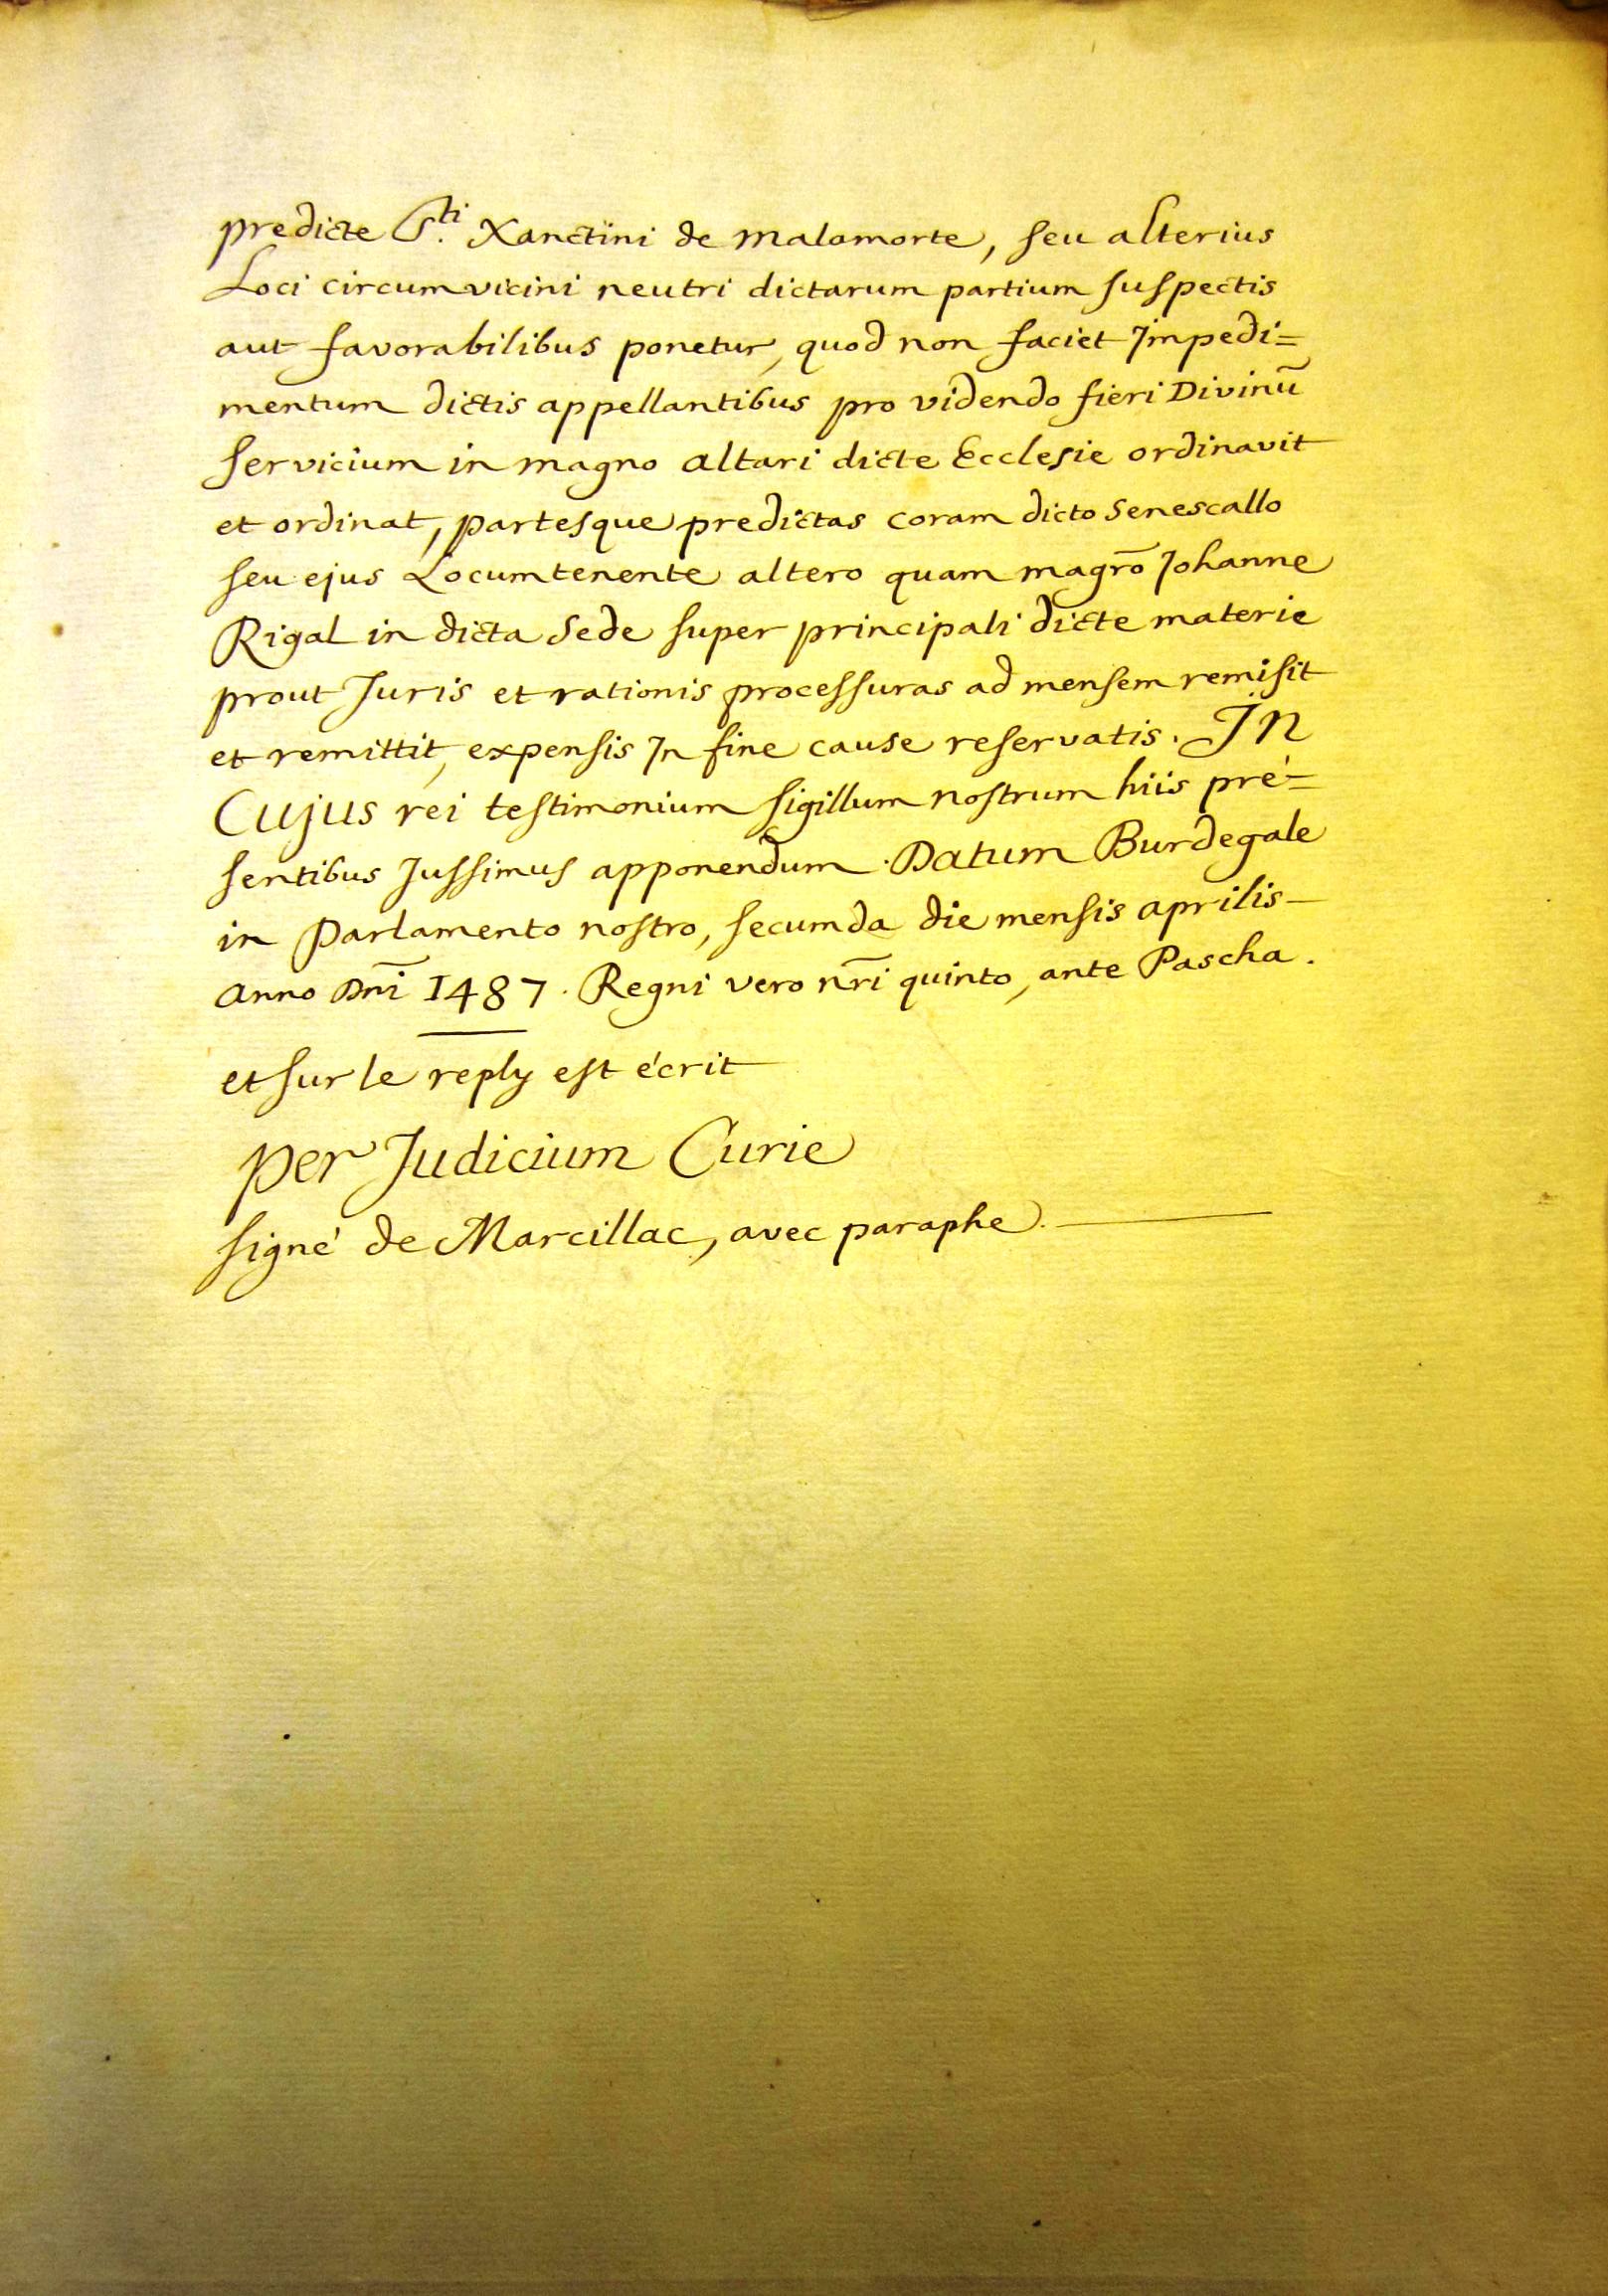 predicte S.ti Xanctini de Malamorte, seu alterius
Loci circumvicini neutri dictarum partium suspectis
aut favorabilibus ponetur, quod non faciet Impedi=
mentum dictis appellantibus pro videndo fieri Divinū
servicium in magno altari dicte Ecclesie ordinavit
et ordinat, partesque predictas coram dicto Senescallo
seu ejus Locumtenente altero quam magrō Johanne
Rigal in dicta Sede super principali dicte materie
prout Juris et rationis processuras ad mensem remisit
et remittit, expensis In fine cause reservatis. In
Cujus rei testimonium sigillum nostrum hiis pré=
sentibus Jussimus apponendum. Datum Burdegale
in Parlamento nostro, secumda die mensis aprilis
anno Dnī 1487. Regni vero nr̄i quinto, ante Pascha.
et sur le reply est écrit
per Judicium Curie
signé de Marcillac, avec paraphe.